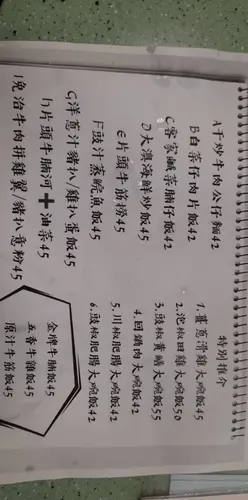 A干炒牛肉公仔麵42
B白菜仔肉片飯42
C客家鹹菜腩仔飯42
D大澳海鮮炒飯45
E片頭牛筋撈45
F豉汁蒸鯇魚飯45
G洋蔥汁豬扒/雞扒蛋飯45
h片頭牛腩河+油菜45
I免治牛肉拼雞翼/豬扒意粉45
特別推介
1.薑蔥滑雞大碗飯45
2.泡椒田雞大碗飯50
3.豉椒黃鱔大碗飯55
4.回鍋肉大碗飯42
5.川椒肥腸大碗飯42
6.豉椒肥腸大碗飯42
金牌牛腩飯45
五香牛雜飯45
原汁牛筋飯45